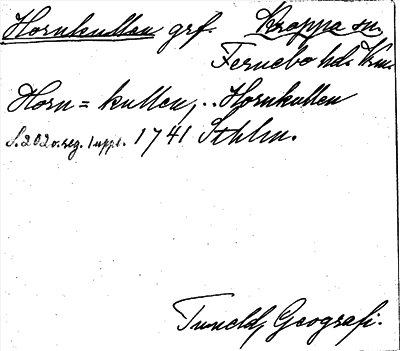 Hornkullen grf. Kroppa sn,
Fernebo hd. Vrm.
Horn = kullen, .. Hornkullen
S. 202 o. reg. 1 uppl. 1741 Sthlm.
Tuneld, Geografi.